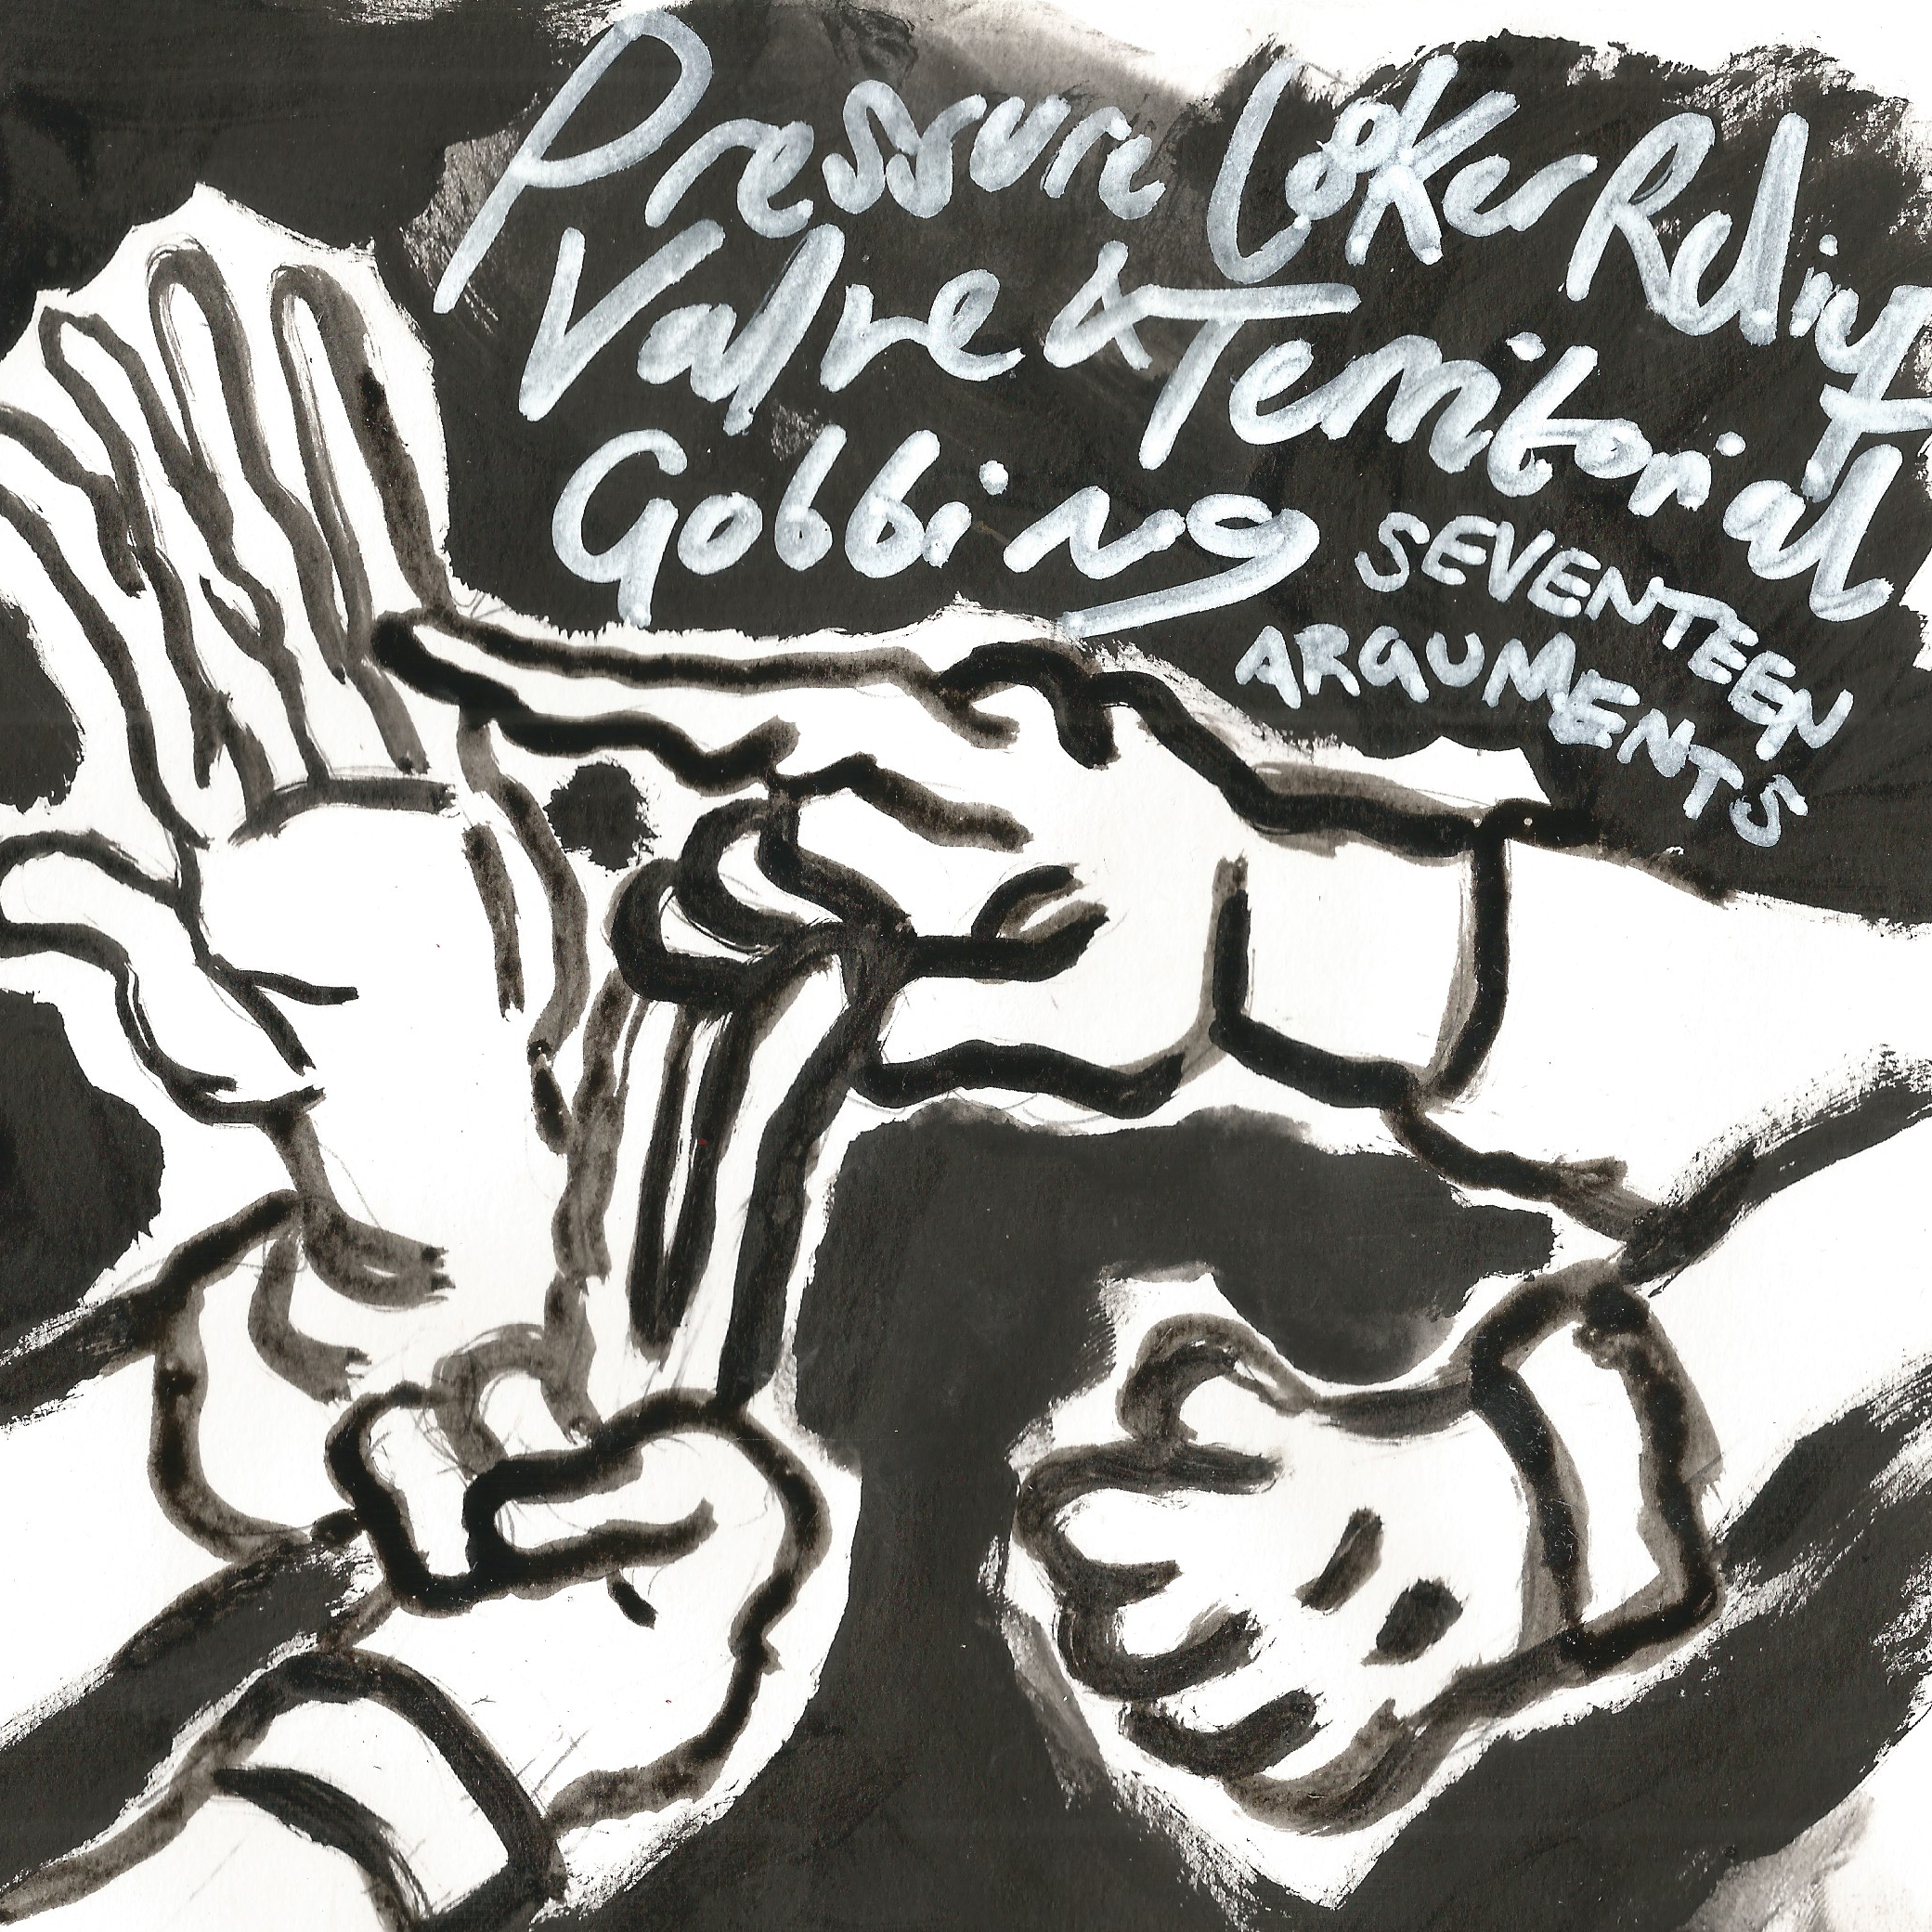 Pressure Cooker Relief
Valve & Territorial
Gobbing
SEVENTEEN
ARGUMENTS